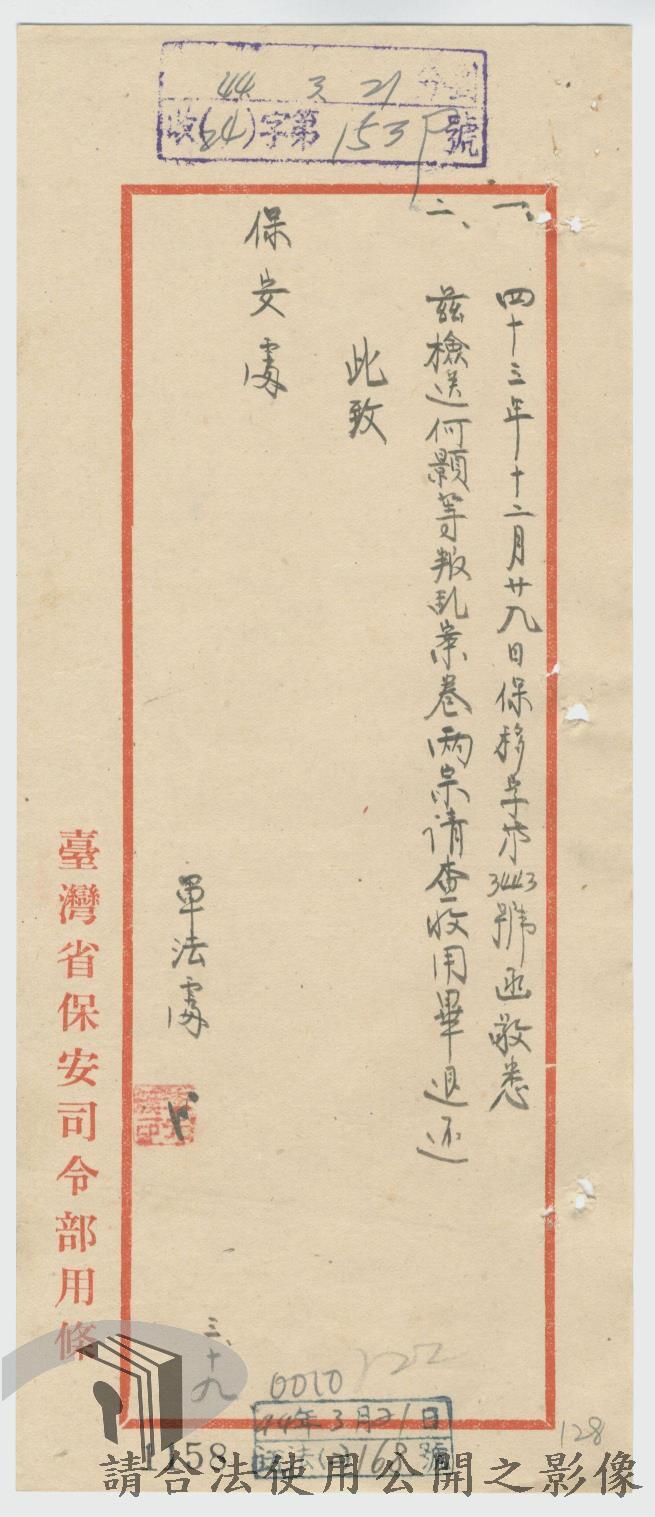 44 3 21
收(44)字第153號
一、四十三年十二月廿九日保移字第3443號函敬悉
二、茲檢送何顯等叛乱案卷兩宗請查收用畢退还
此致
保安處
軍法處
三、十九
臺灣省保安司令部用條
0010
122
44年3月21日
168號
128
1158
請合法使用公開之影像